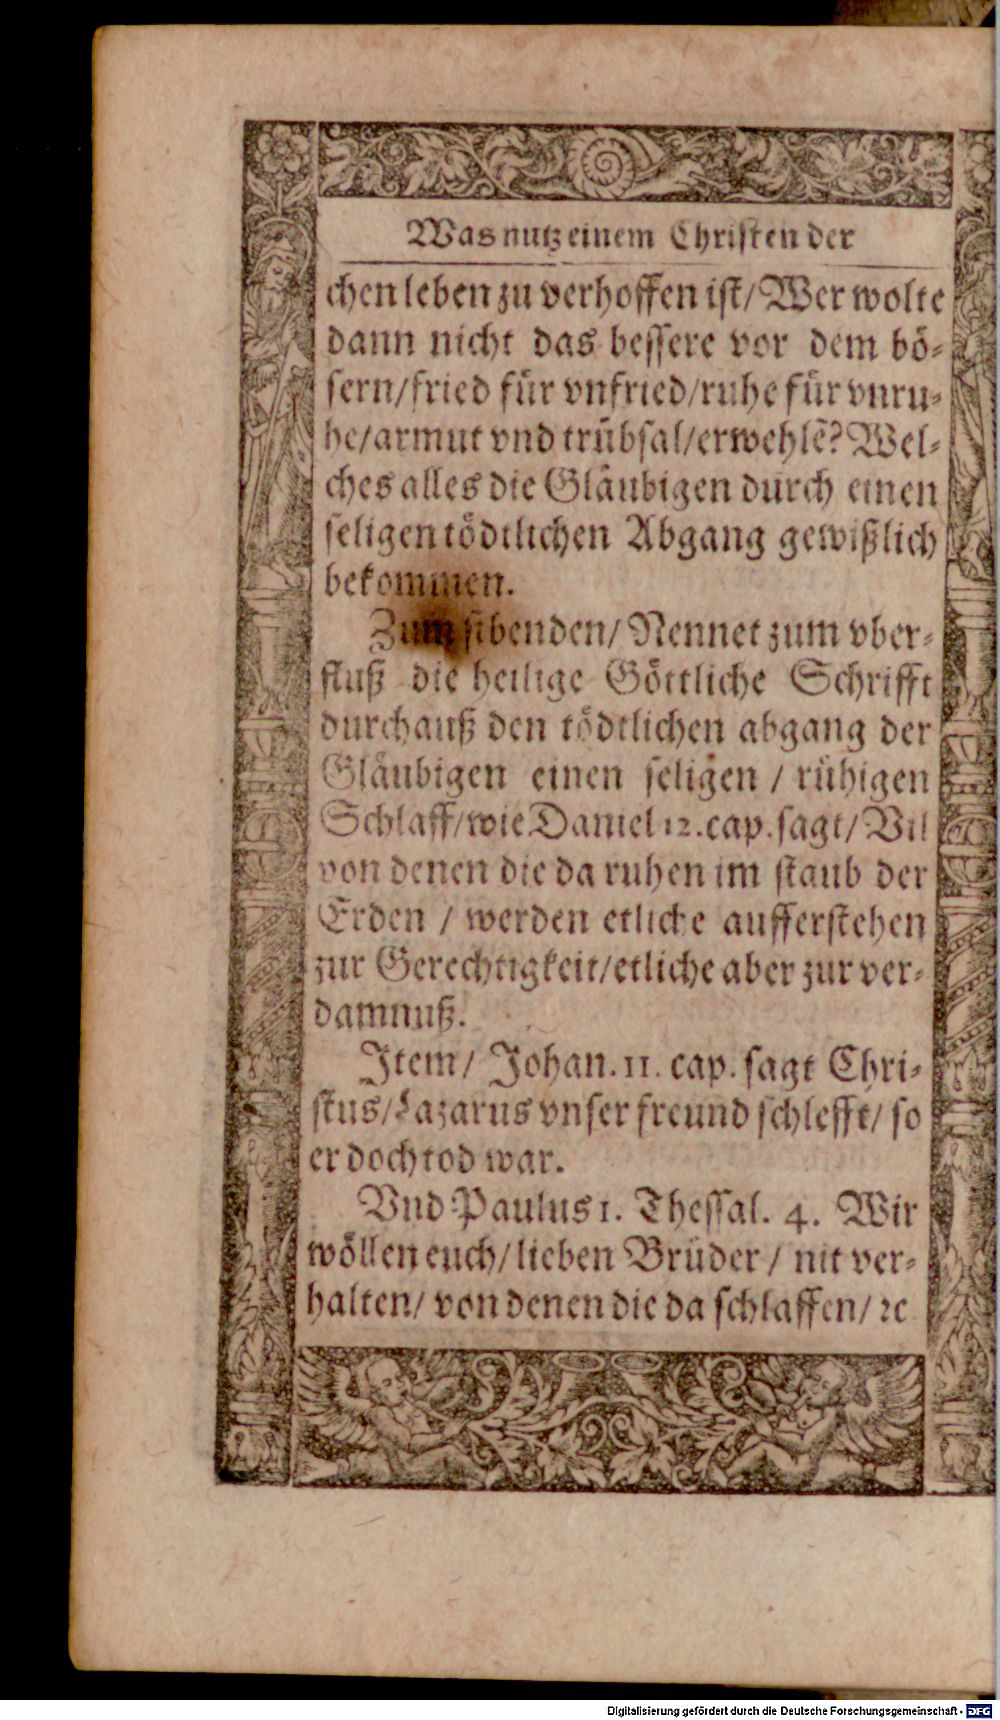 Was nutz einem Christen der
chen leben zu verhoffen ist/ Wer wolte
dann nicht das bessere vor dem bö-
sern/ fried für vnfried/ ruhe für vnru-
he/ armut vnd trübsal/ erwehlẽ? Wel-
ches alles die Gläubigen durch einen
seligen tödtlichen Abgang gewißlich
bekommen.
Zum sibenden/ Nennet zum vber-
fluß die heilige Göttliche Schrifft
durchauß den tödtlichen abgang der
Gläubigen einen seligen / rühigen
Schlaff/ wie Daniel 12. cap. sagt/ Vil
von denen die da ruhen im staub der
Erden / werden etliche aufferstehen
zur Gerechtigkeit/ etliche aber zur ver-
damnuß.
Item/ Johan. 11. cap. sagt Chri-
stus/ Lazarus vnser freund schlefft/ so
er doch tod war.
Vnd Paulus 1. Thessal. 4. Wir
wöllen euch/ lieben Brüder / nit ver-
halten/ von denen die da schlaffen/ ꝛc
Digitalisierung gefördert durch die Deutsche Forschungsgemeinschaft - DFG